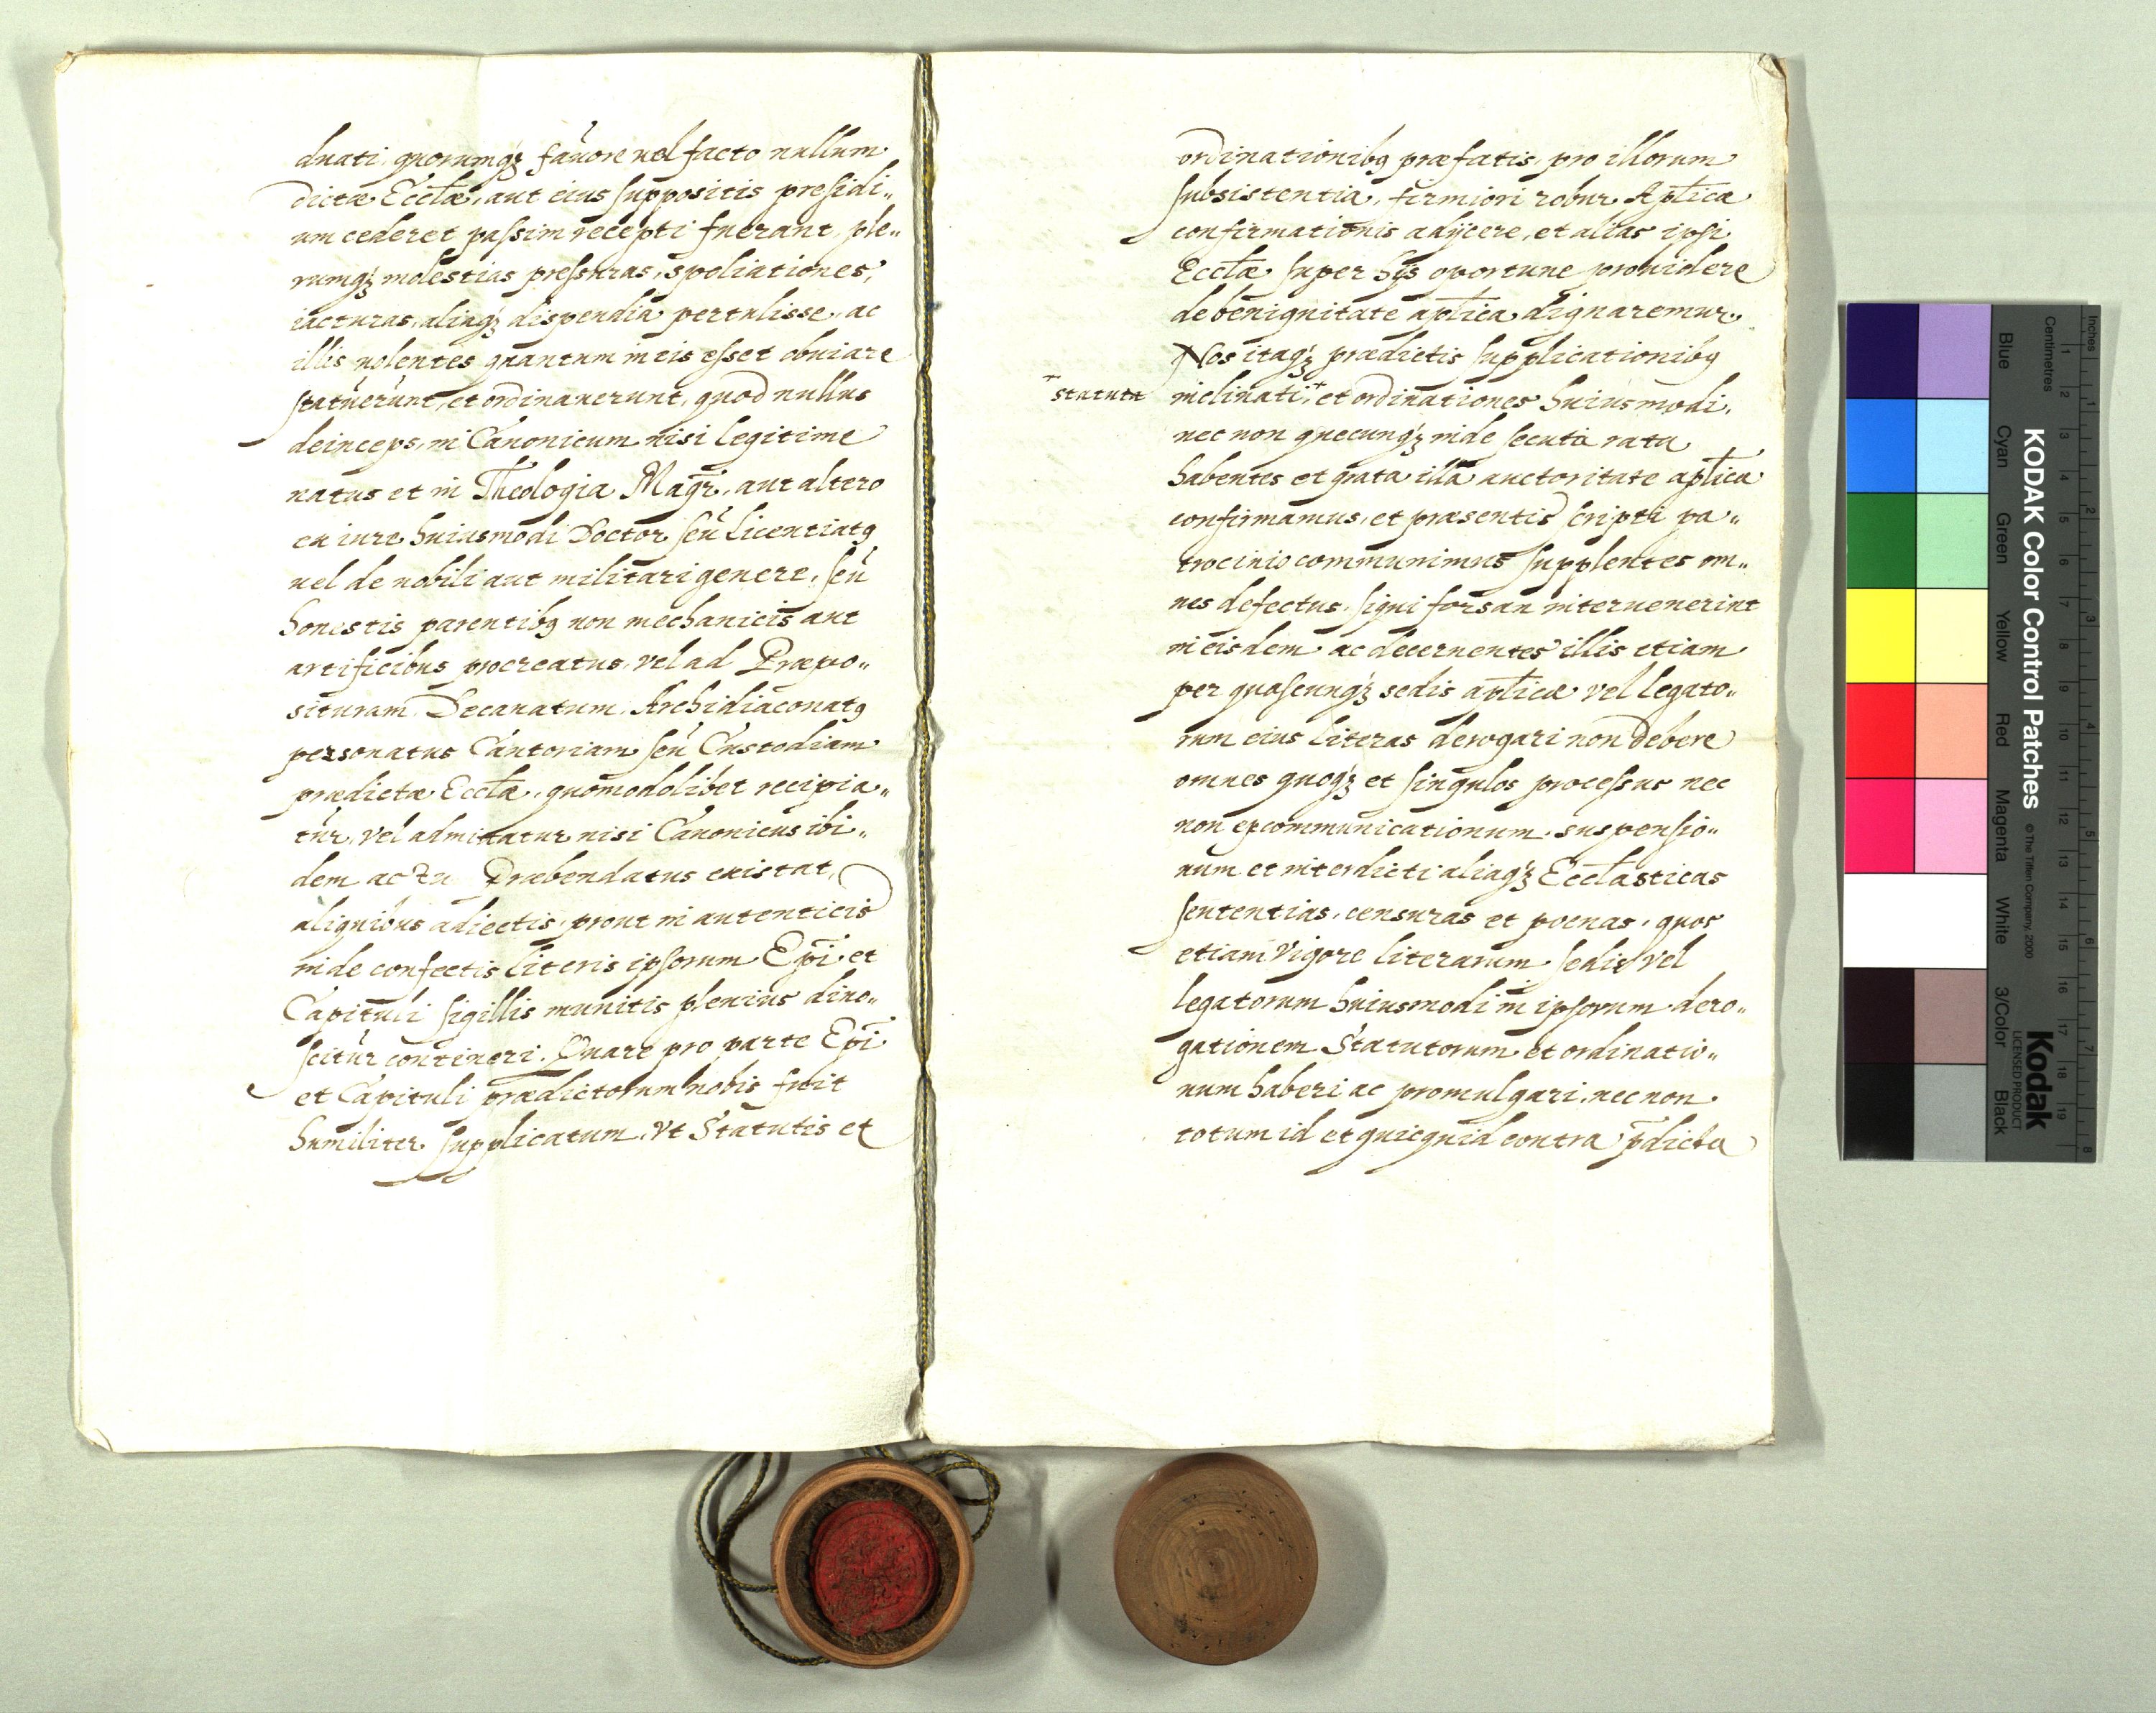 duati, quorumq3 fauore uel facto nullum
dictæ Ecctæ, aut eius suppositis presidi„
um cederet passim recepti fuerant, ple„
rumq3 molestias pressuras, spoliationes,
iacturas, aliaq3 dispendia pertulisse, ac
illis uolentes quantum in eis esset obuiare
statuerunt, et ordinauerunt, quod nullus
deinceps, in Canonicum nisi legitime
natus et in Theologia Magr̄, aut altero
ex iure huiusmodi Doctor seu licentiatq
uel de nobili aut militari genere, seu
honestis parentibq non mechanicis aut
artificibus procreatus, vel ad Præpo„
situram, Decanatum, Archidiaconatq
personatus Cantoriam seu Custodiam
prædictæ Ecctæ, quomodolibet recipia„
tur, vel admittatur nisi Canonicus ibi„
dem actu Præbendatus existat,
aliquibus adiectis, prout in autenticis
inde confectis literis ipsorum Epī et
Capituli sigillis munitis plenius dino„
scitur contineri. Quare pro parte Epī
et Capituli prædictorum nobis fuit
humiliter supplicatum, vt Statutis et
ordinationibq præfatis, pro illorum
subsistentia, firmiori robur Aptica
confirmationis adijcere, et alias ipsi
Ecctæ super hijs oportune prouidere
de benignitate aptica dignaremur.
Nos itaq3 prædictis supplicationibq
+ statuta
inclinati, + et ordinationes huiusmodi,
nec non quecunq3 inde secuta rata
habentes et grata illa auctoritate aptica
confirmamus, et præsentis scripti pa„
trocinio communimus supplentes om„
nes defectus, siqui forsan interuenerint
in eisdem ac decernentes illis etiam
per quascunq3 sedis apticæ vel legato„
rum eius literas derogari non debere
omnes quoq3 et singulos processus nec
non excommunicationum, suspensio„
num et interdicti aliaq3 Ecctasticas
sententias, censuras et poenas, quos
etiam vigore literarum sedis vel
legatorum huiusmodi in ipsorum dero„
gationem Statutorum et ordinatio„
num haberi ac promulgari, nec non
totum id et quicquid contra p̄dicta
KODAK Color Control Patches
© The Tiffen Company, 2000
Kodak
LICENSED PRODUCT
Blue Cyan Green Yellow Red Magenta White 3/Color Black
Inches 1 2 3 4 5 6 7 8
Centimetres 1 2 3 4 5 6 7 8 9 10 11 12 13 14 15 16 17 18 19